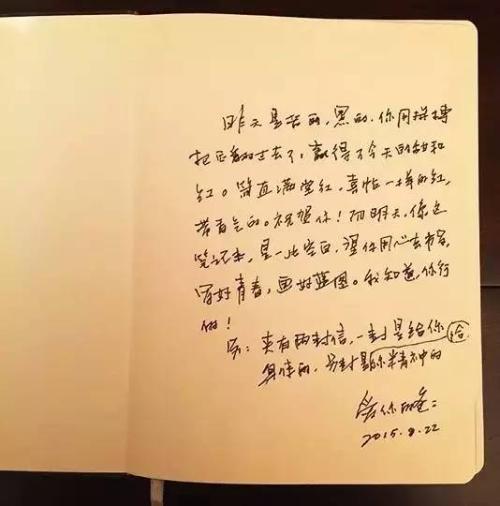 昨天是苦的,黑的,你用拼搏
把它们过去了,赢得了今天的甜和
红。简直满堂红,真怕一样的红,
带着气的。祝贺你!而明天,像这
笔记本,是一片空白,望你用心去书写,
写好青春,画好蓝图。我知道,你行
的!
另:夹有两封信,一封是给你
具体的,另封是给你精神的
爱你的爸:
2015.8.22